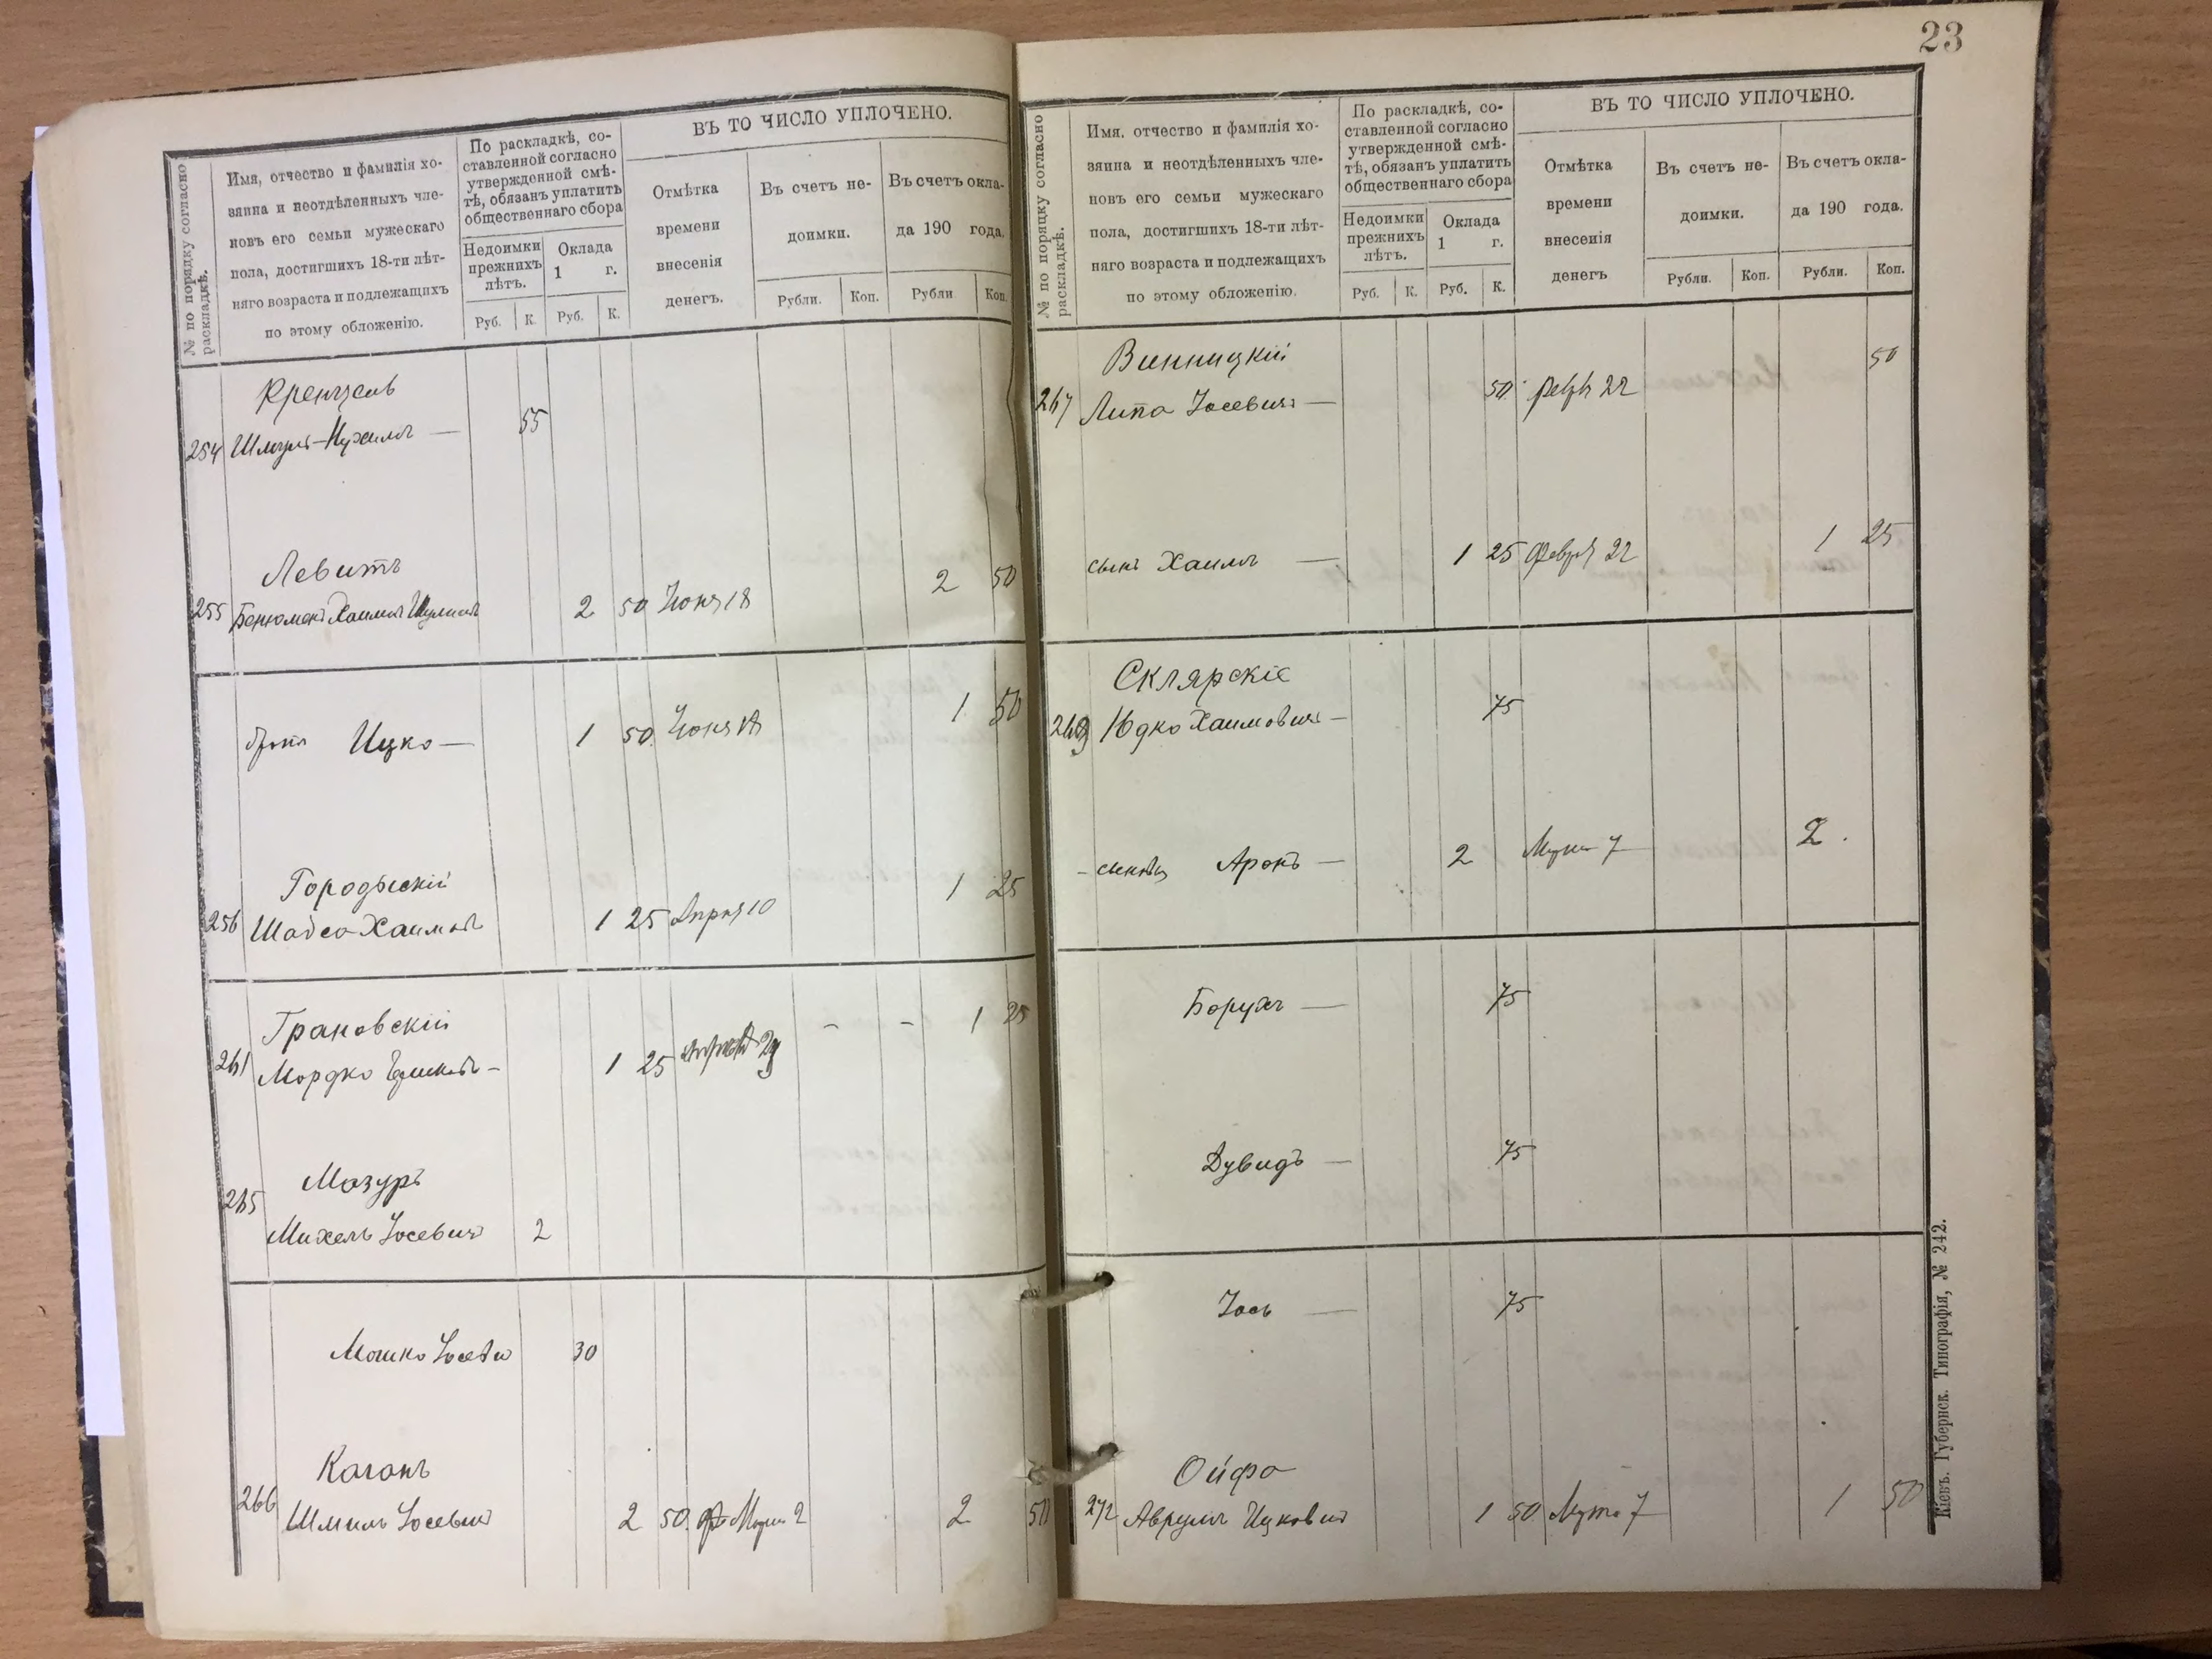 № по порядку согласно раскладкѣ.
Имя, отчество и фамилія хо-
зяина и неотдѣленныхъ чле-
новъ его семьи мужескаго
пола, достигшихъ 18-ти лѣт-
няго возраста и подлежащихъ
по этому обложенію.
По раскладкѣ, со-
ставленной согласно
утвержденной смѣ-
тѣ, обязанъ уплатить
общественнаго сбора
Недоимки прежнихъ лѣтъ.
Оклада 1 г.
Руб. К. Руб. К.
ВЪ ТО ЧИСЛО УПЛОЧЕНО.
Отмѣтка
времени
внесенія
денегъ.
Въ счетъ не-
доимки.
Въ счетъ окла-
да 190 года.
Рубли. Коп. Рубли Коп.
Кренцель
254 Шмуль- — 55
Левитъ
255 Бенюменъ Хаимъ 2 50 Іюня 18 2 50
братъ Ицко — 1 50 Іюня 18 1 50
Городыскій
256 Шабса Хаимов 1 25 Апрля 10 1 25
Грановскій
261 Мордко - 1 25 29 - - 1 25
Мазуръ
265
Михель Іосевич 2
Мошко Іосев 30
Каганъ
266 Шмиль Іосевич 2 50 Марта 2 2 50
23
№ по порядку согласно раскладкѣ.
Имя, отчество и фамилія хо-
зяина и неотдѣленныхъ чле-
новъ его семьи мужескаго
пола, достигшихъ 18-ти лѣт-
няго возраста и подлежащихъ
по этому обложенію.
По раскладкѣ, со-
ставленной согласно
утвержденной смѣ-
тѣ, обязанъ уплатить
общественнаго сбора
Недоимки прежнихъ лѣтъ.
Оклада 1 г.
Руб. К. Руб. К.
ВЪ ТО ЧИСЛО УПЛОЧЕНО.
Отмѣтка
времени
внесенія
денегъ
Въ счетъ не-
доимки.
Въ счетъ окла-
да 190 года.
Рубли. Коп. Рубли. Коп.
Винницкій
267 Липа Іосевичъ — 50 февр 22 50
сынъ Хаимъ — 1 25 Февр 22 1 25
Склярскіе
269 Юдко Хаимовичъ — 75
сыновья Аронъ — 2 Марта 7 2
Борухъ — 75
Дувидъ — 75
Іось — 75
Ойфа
272 Аврумъ Ицкович 1 50 Марта 7 1 50
Кіевъ. Губернск. Типографія, № 242.